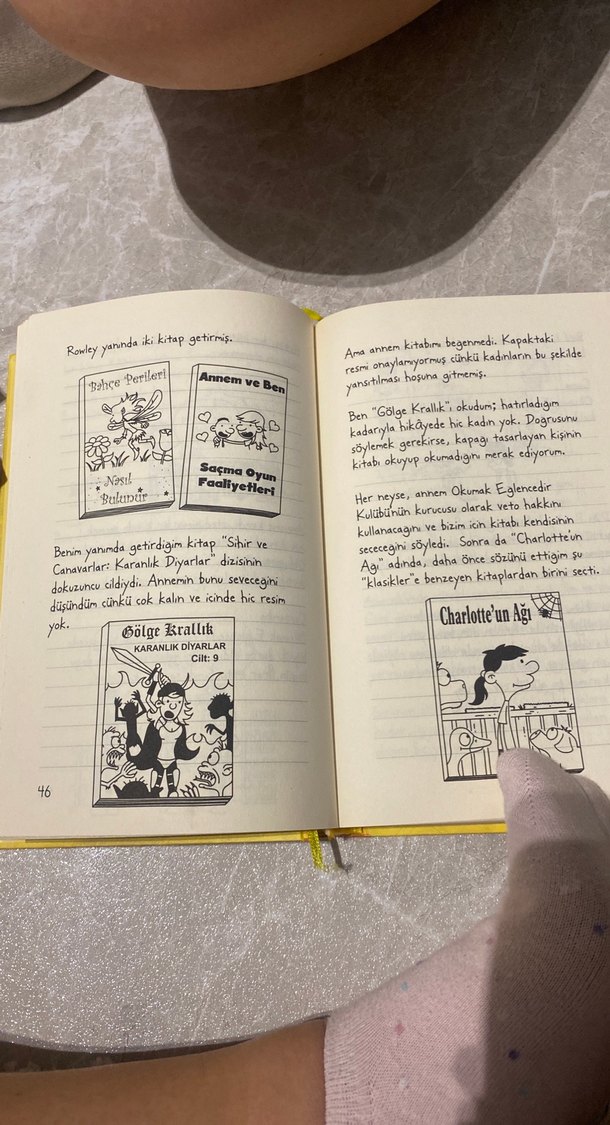 Rowley yanında iki kitap getirmiş.
Bahçe Perileri
Nasıl
Bulunur
Annem ve Ben
Saçma Oyun
Faaliyetleri
Benim yanımda getirdiğim kitap "Sihir ve
Canavarlar: Karanlık Diyarlar" dizisinin
dokuzuncu cildiydi. Annemin bunu seveceğini
düşündüm çünkü çok kalın ve içinde hiç resim
yok.
Gölge Krallık
KARANLIK DİYARLAR
Cilt: 9
46
Ama annem kitabımı beğenmedi. Kapaktaki
resmi onaylamıyormuş çünkü kadınların bu şekilde
yansıtılması hoşuna gitmemiş.
Ben "Gölge Krallık"ı okudum; hatırladığım
kadarıyla hikâyede hiç kadın yok. Doğrusunu
söylemek gerekirse, kapağı tasarlayan kişinin
kitabı okuyup okumadığını merak ediyorum.
Her neyse, annem Okumak Eğlencedir
Kulübü'nün kurucusu olarak veto hakkını
kullanacağını ve bizim için kitabı kendisinin
seçeceğini söyledi. Sonra da "Charlotte'un
Ağı" adında, daha önce sözünü ettiğim şu
"klasikler"e benzeyen kitaplardan birini seçti.
Charlotte'un Ağı